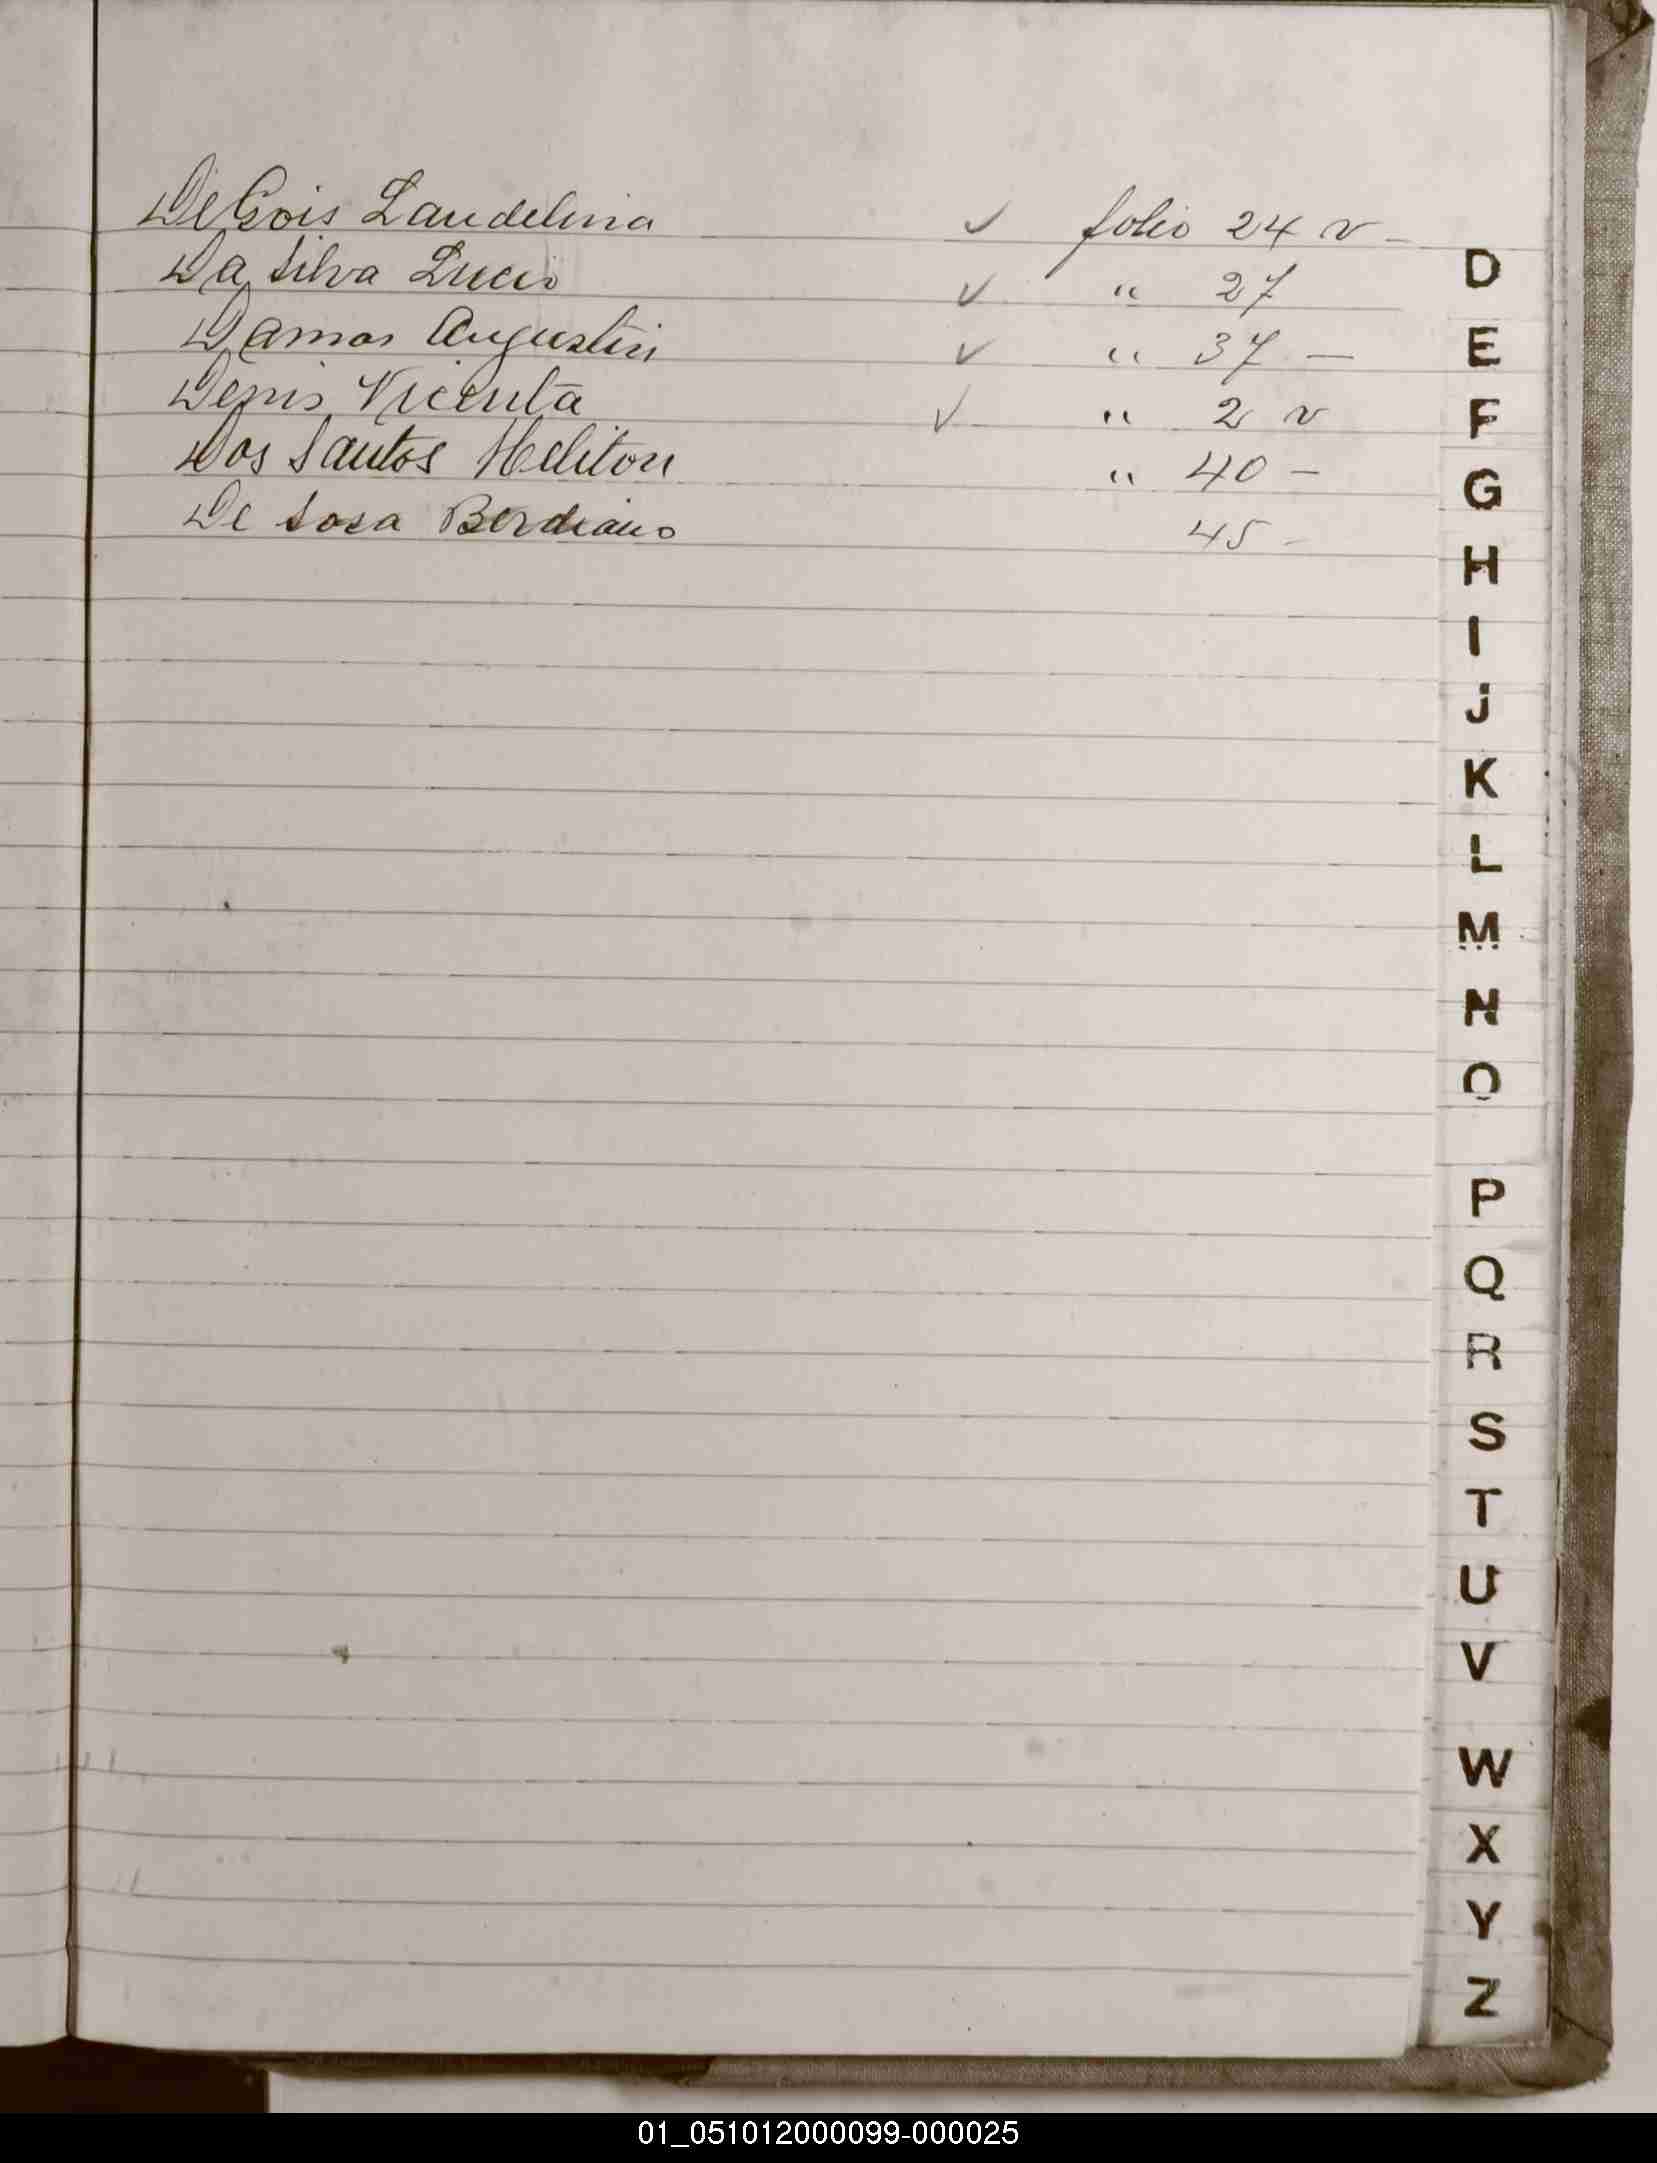 De Gois Laudelina ✓ folio 24 v -
Da Silva Lucio ✓ " 27
Damas Augustin ✓ " 37 —
Denis Vicenta ✓ " 2 v
Dos Santos Heliton " 40 -
De Sosa Berdiano 45 -
D
E
F
G
H
I
J
K
L
M
N
O
P
Q
R
S
T
U
V
W
X
Y
Z
01_051012000099-000025